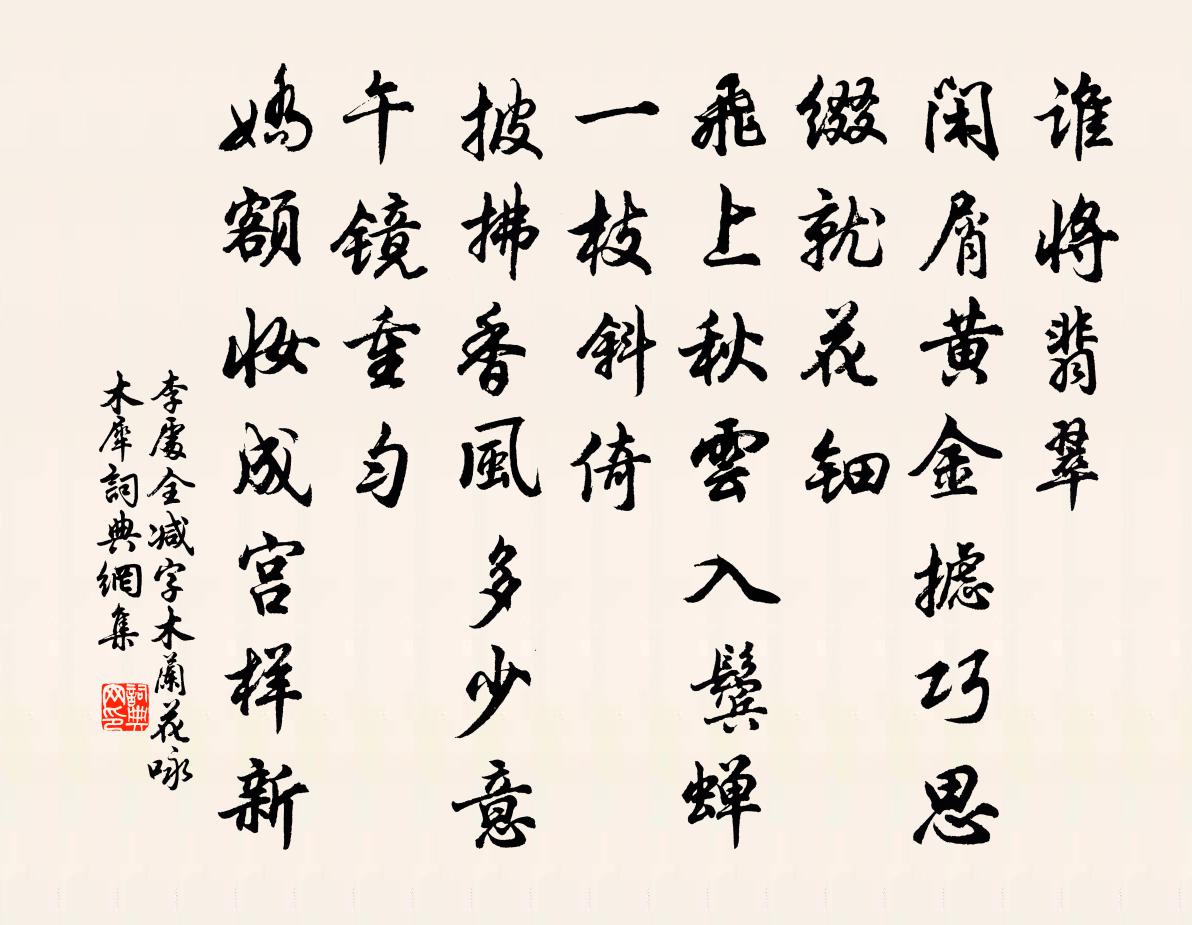 谁将翡翠
闲屑黄金摅巧思
缀就花钿
飛上秋雲入鬓蝉
一枝斜倚
披拂香風多少意
午镜重匀
娇额妆成宫样新
李處全减字木蘭花咏
木犀詞典網集
詞典
网印